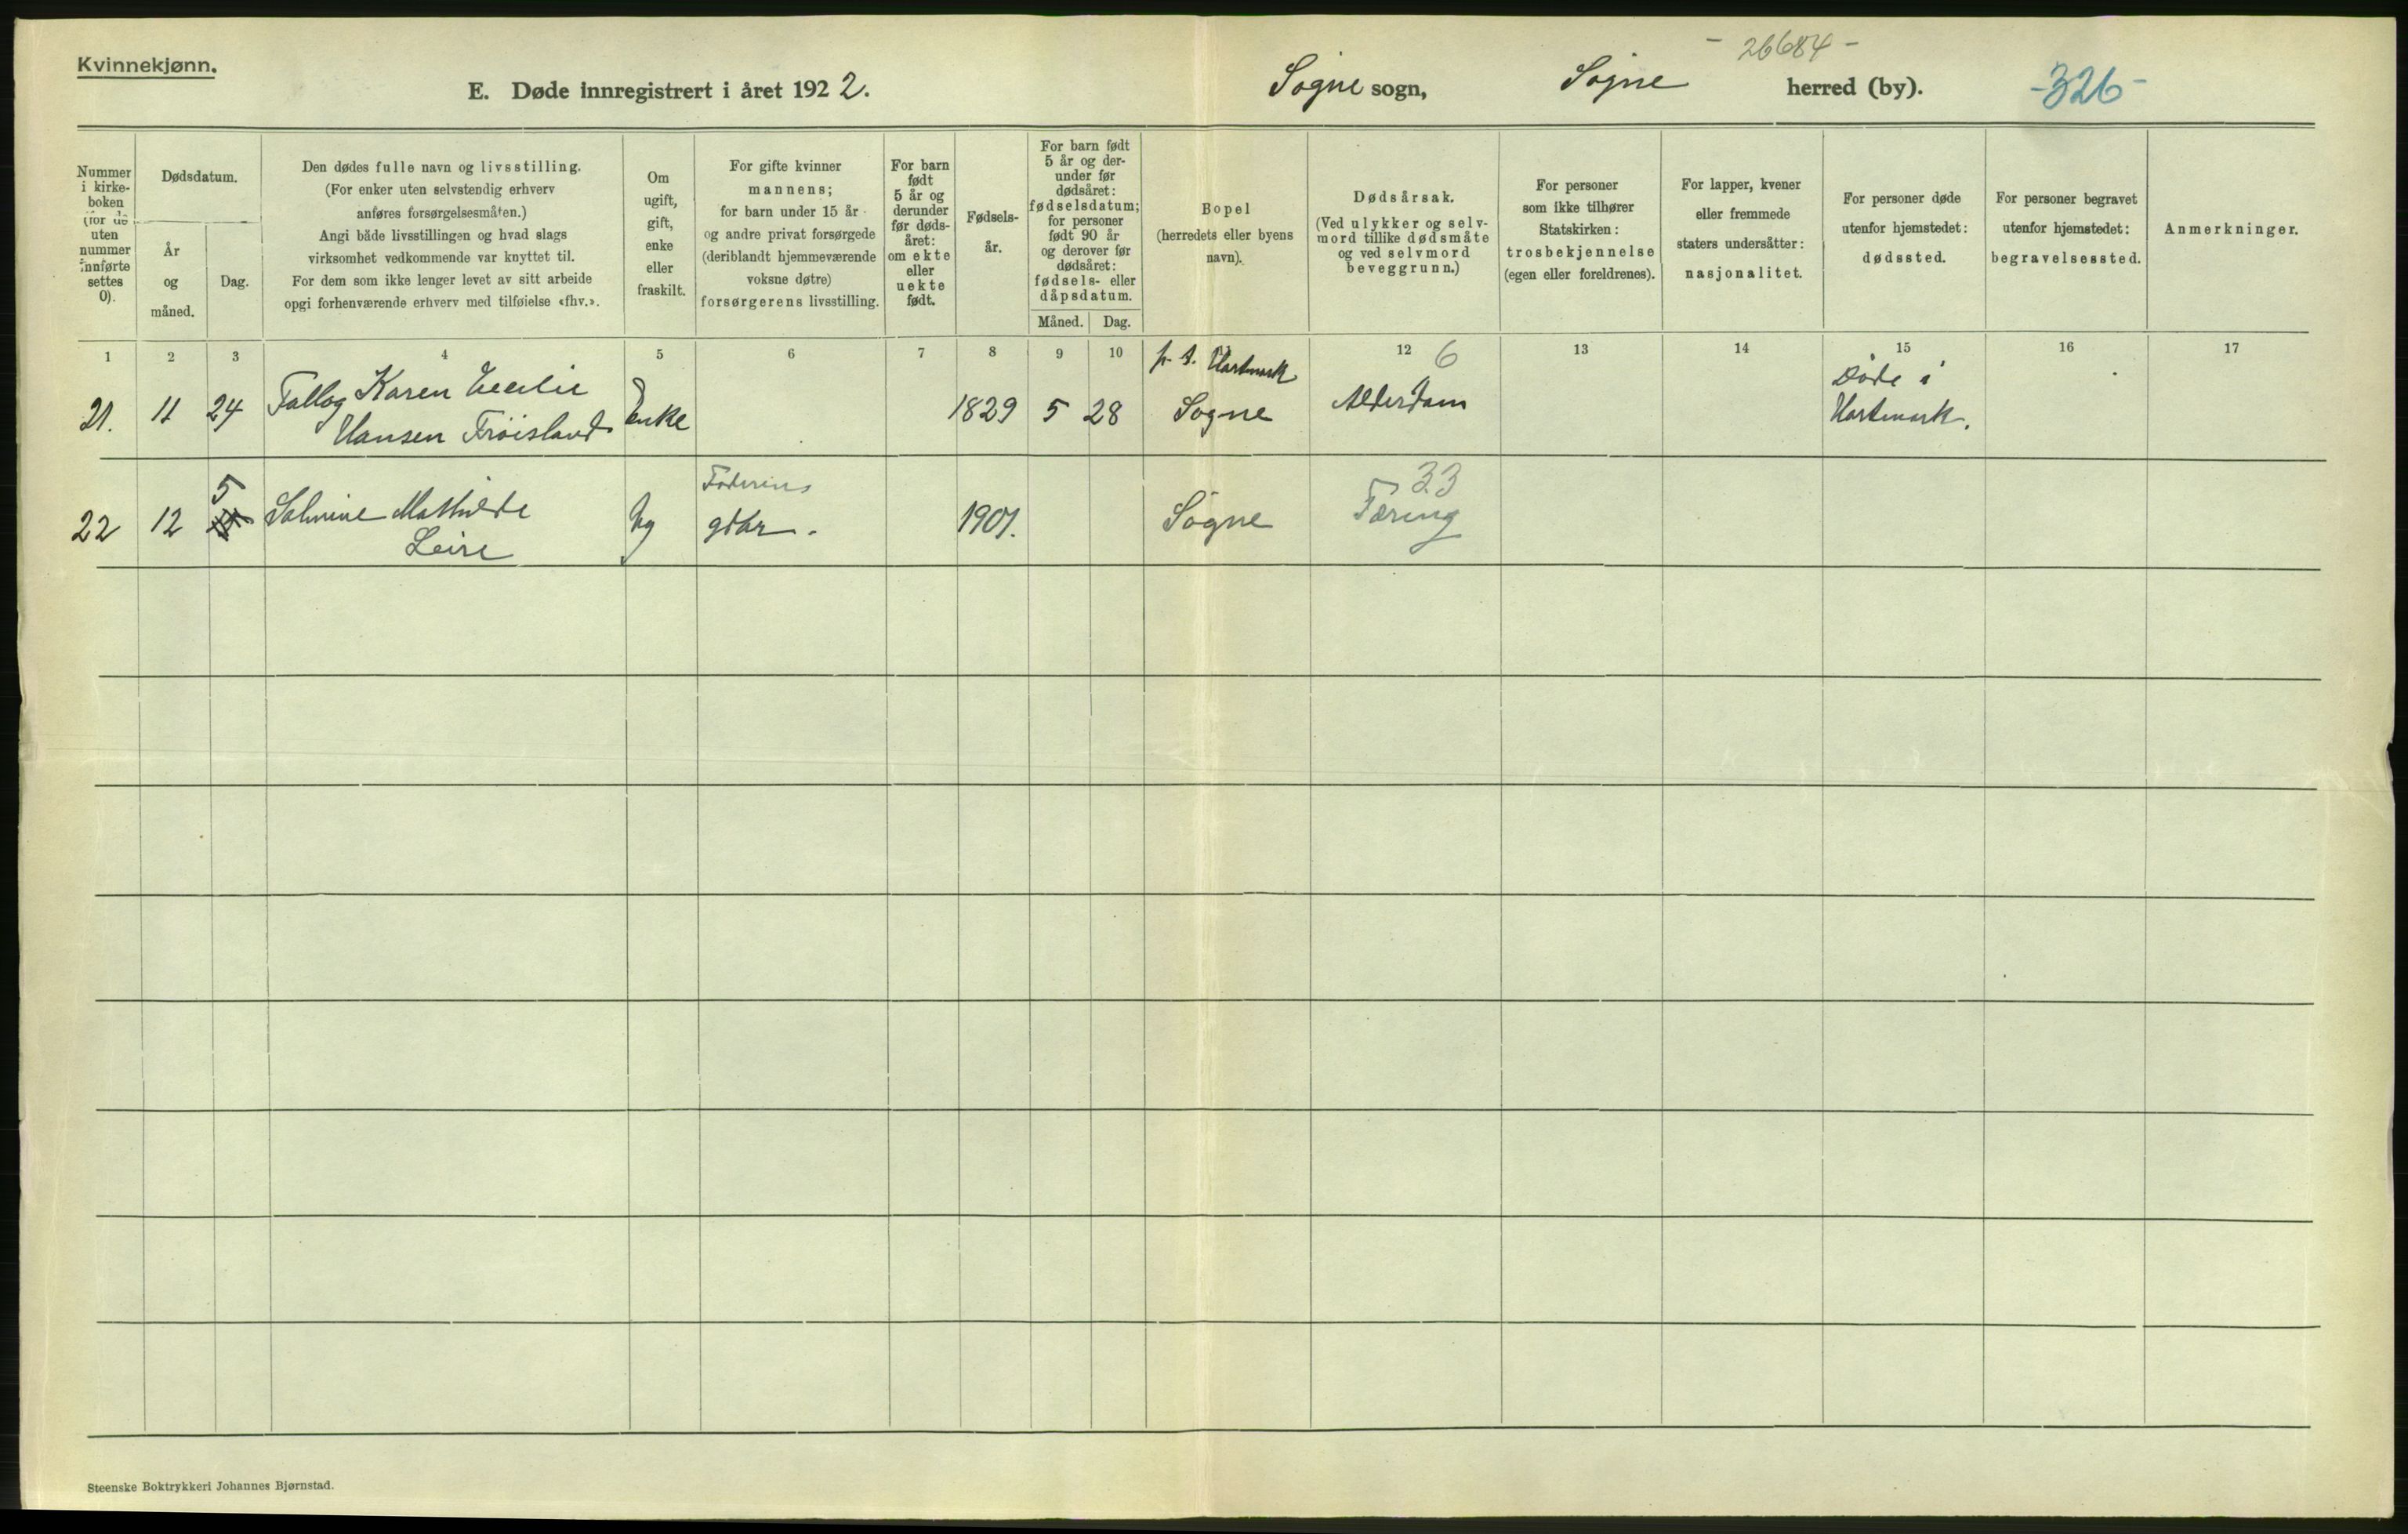 Kvinnekjønn.
- 26684 -
E. Døde innregistrert i året 1922.
Søgne sogn,
Søgne herred (by).
-326-
Nummer i kirkeboken (for de uten nummer innførte settes 0).
Dødsdatum.
År og måned.
Dag.
Den dødes fulle navn og livsstilling.
(For enker uten selvstendig erhverv
anføres forsørgelsesmåten.)
Angi både livsstillingen og hvad slags
virksomhet vedkommende var knyttet til.
For dem som ikke lenger levet av sitt arbeide
opgi forhenværende erhverv med tilføielse «fhv.».
Om
ugift,
gift,
enke
eller
fraskilt.
For gifte kvinner
mannens;
for barn under 15 år
og andre privat forsørgede
(deriblandt hjemmeværende
voksne døtre)
forsørgerens livsstilling.
For barn
født
5 år og
derunder
før døds-
året:
om ekte
eller
uekte
født.
Fødsels-
år.
For barn født
5 år og der-
under før
dødsåret:
fødselsdatum;
for personer
født 90 år
og derover før
dødsåret:
fødsels- eller
dåpsdatum.
Måned. Dag.
Bopel
(herredets eller byens
navn).
Dødsårsak.
(Ved ulykker og selv-
mord tillike dødsmåte
og ved selvmord
beveggrunn.)
For personer
som ikke tilhører
Statskirken:
trosbekjennelse
(egen eller foreldrenes).
For lapper, kvener
eller fremmede
staters undersåtter:
nasjonalitet.
For personer døde
utenfor hjemstedet:
dødssted.
For personer begravet
utenfor hjemstedet:
begravelsessted.
Anmerkninger.
1 2 3 4 5 6 7 8 9 10 12 13 14 15 16 17
6
21. 11 24 Tallog Karen Cecilie
Hansen Frøisland
Enke 1829 5 28
Hartmark
Søgne
Alderdom
Døde i
Hartmark.
22 12 5 Salmine Mathilde
Leire
Ug
Faderens
gbkr.
1901.
Søgne
33
Tæring
Steenske Boktrykkeri Johannes Bjørnstad.